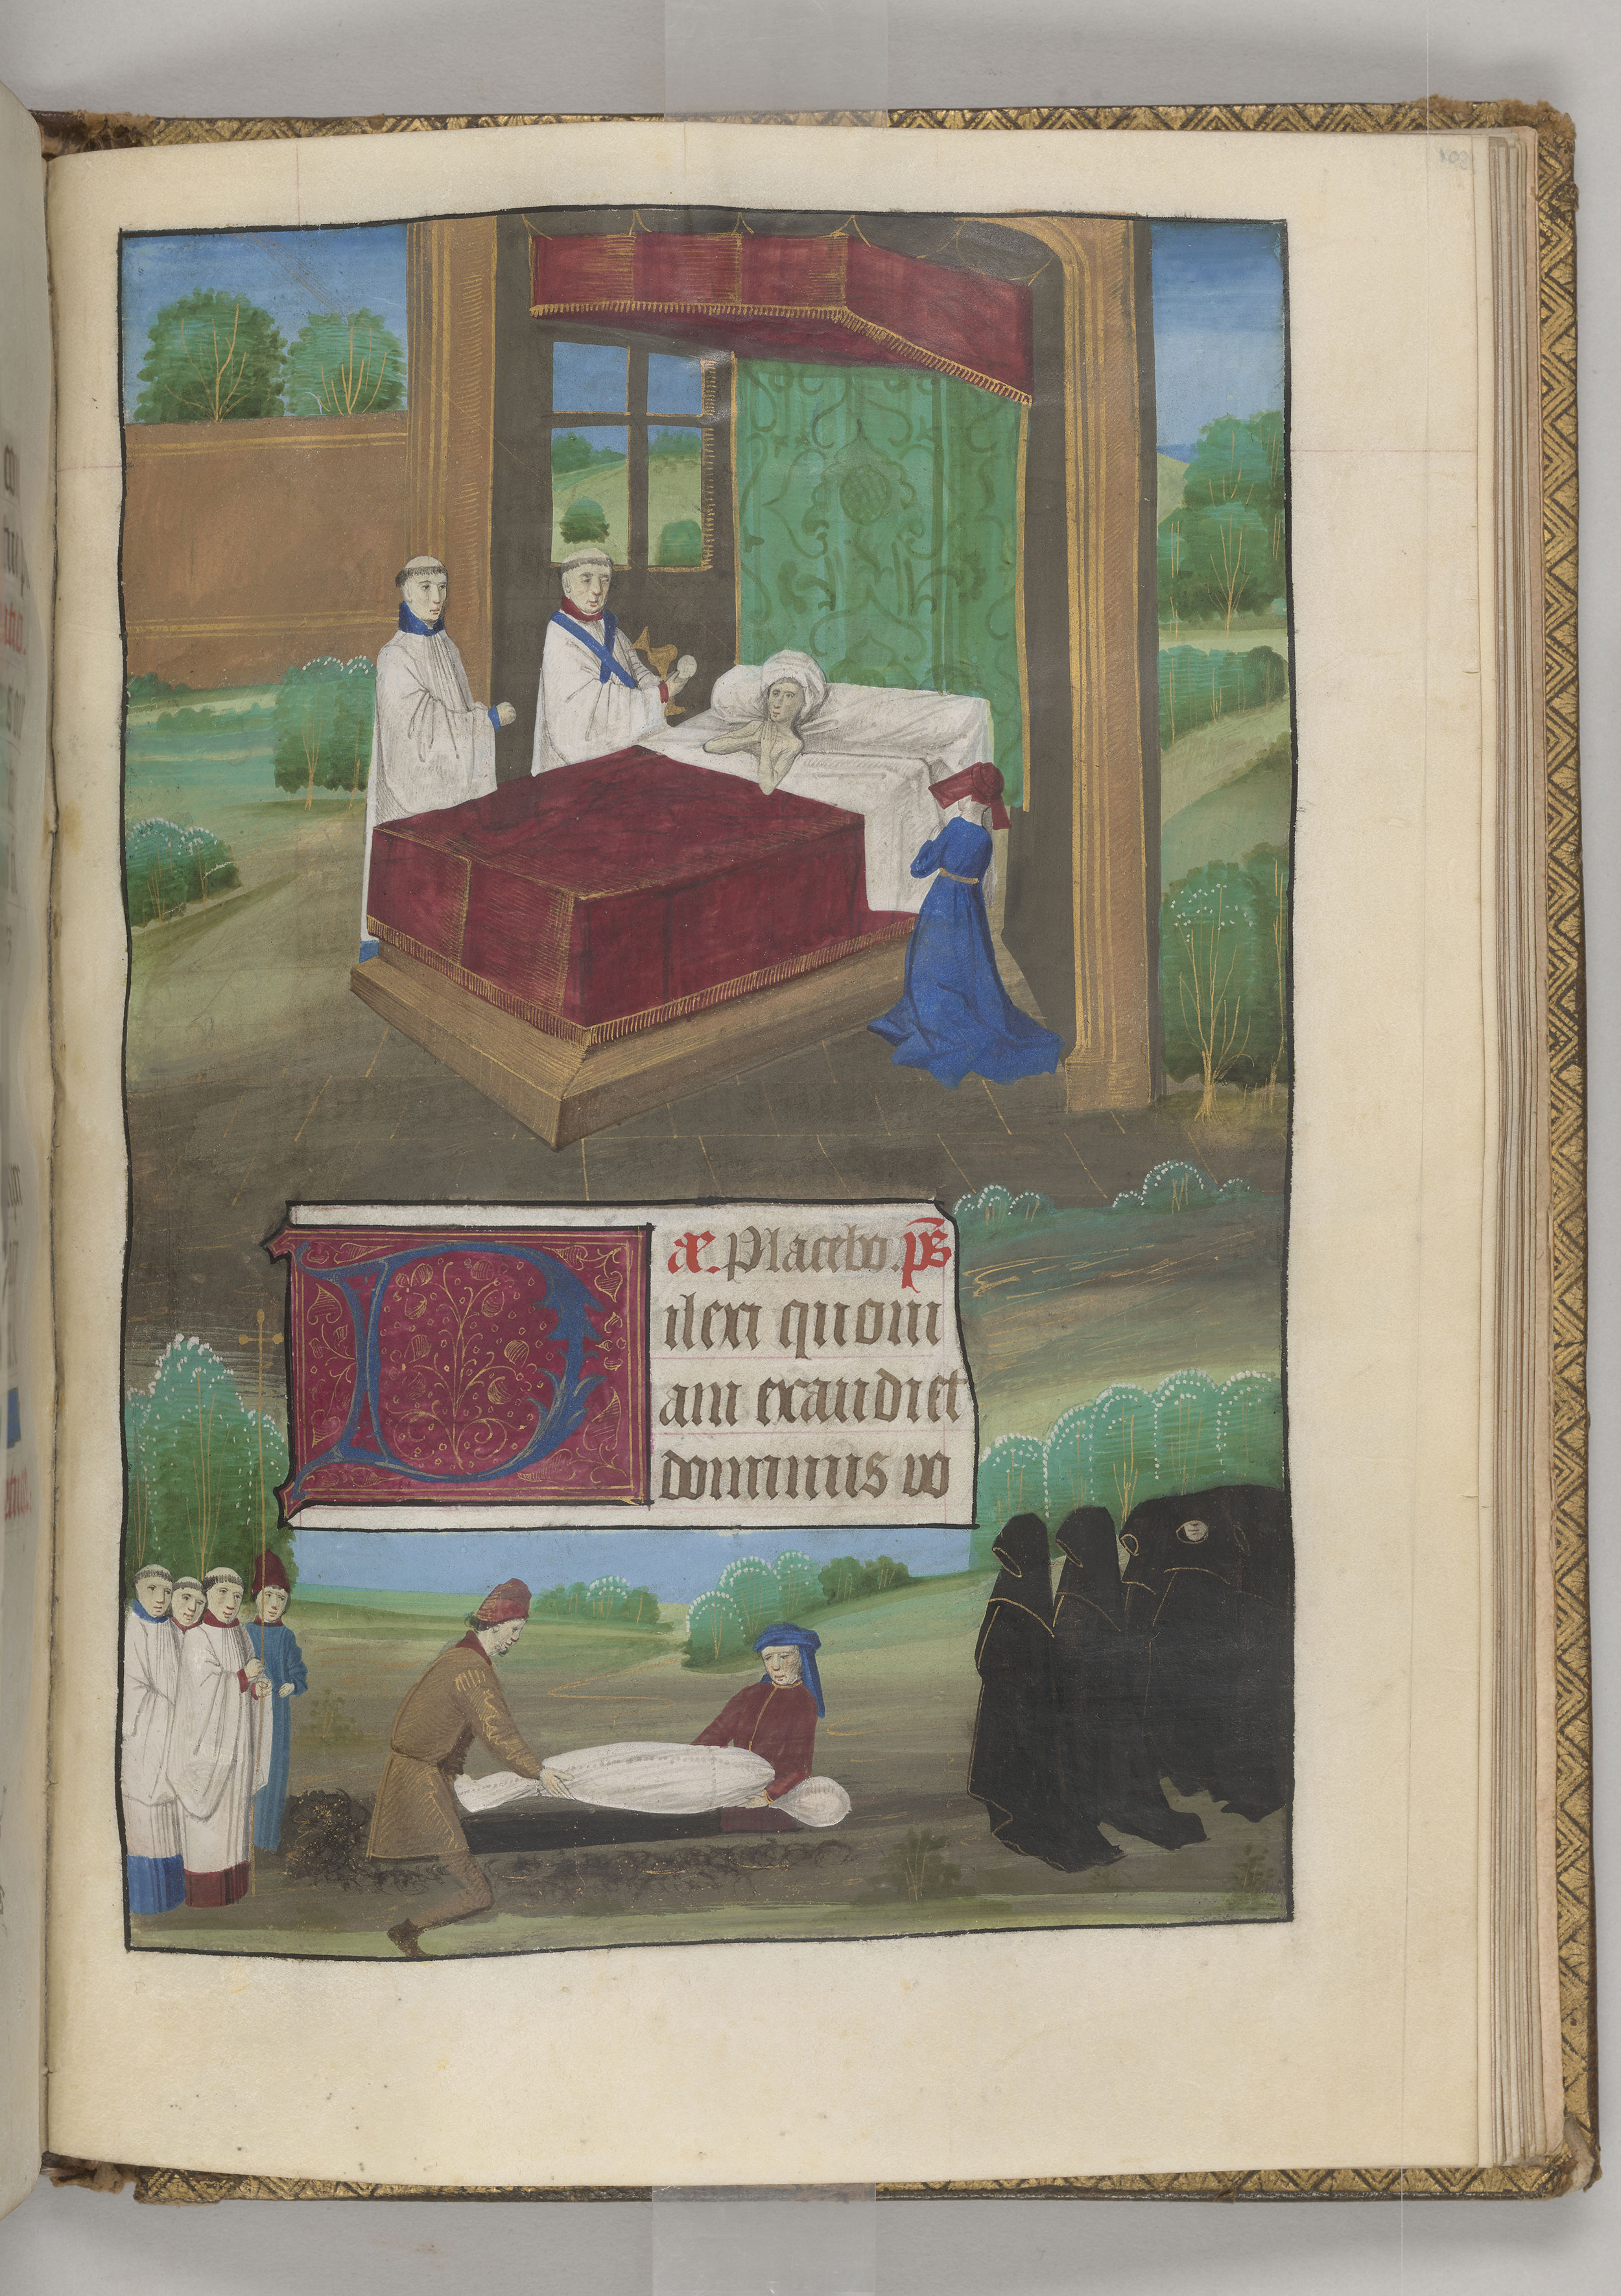 103
æ. Placebo. ps̄
Dilexi quoni
am exaudiet
dominus vo